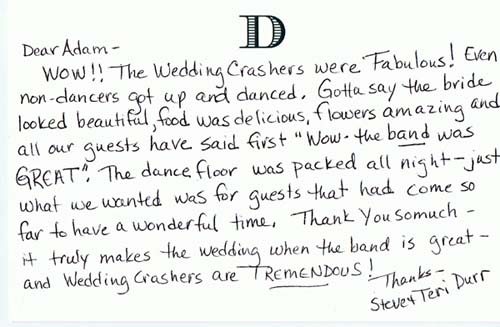 D
Dear Adam -
WOW!! The Wedding Crashers were Fabulous! Even
non-dancers got up and danced. Gotta say the bride
looked beautiful, food was delicious, flowers amazing and
all our guests have said first "Wow - the band was
GREAT". The dance floor was packed all night - just
what we wanted was for guests that had come so
far to have a wonderful time. Thank You so much -
it truly makes the wedding when the band is great -
and Wedding Crashers are TREMENDOUS!
Thanks -
Steve & Teri Durr